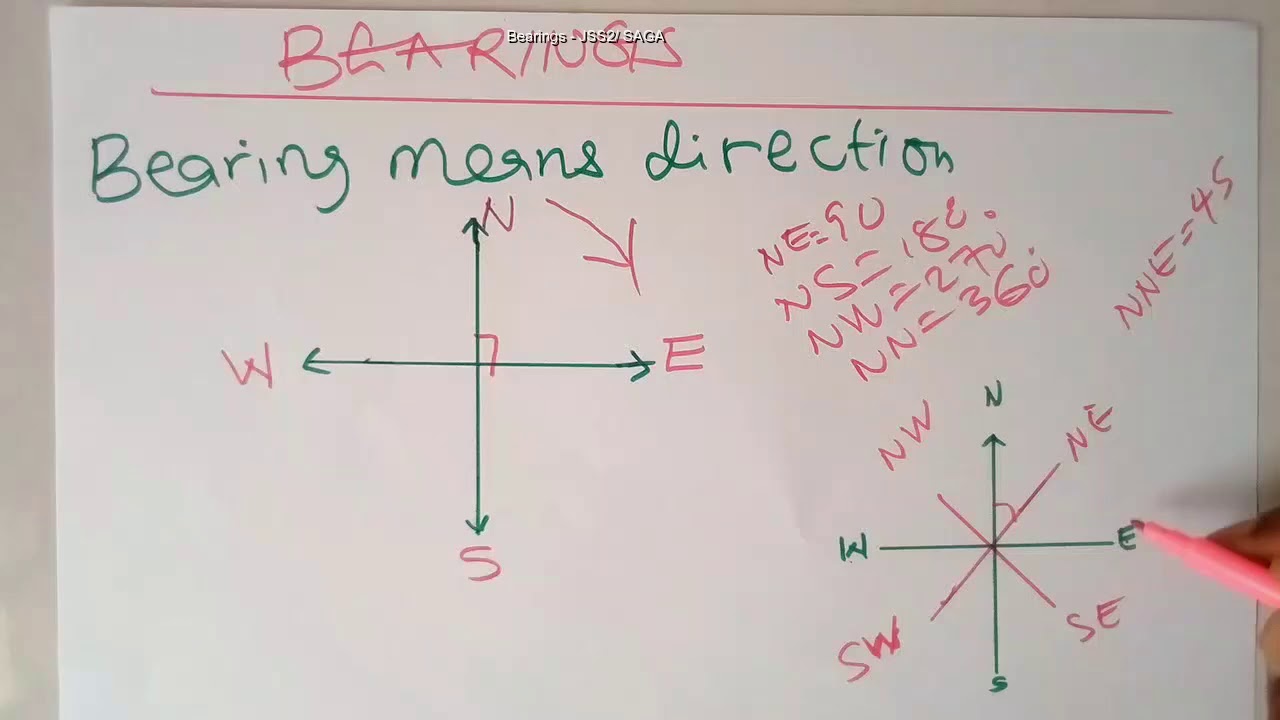 Bearings - JSS2/ SAGA
BEARINGS
Bearing means direction
N
W
E
S
NE=90
NS=180°
NW=270°
NN=360°
NNE=45
N
NW
NE
W
E
SW
SE
S